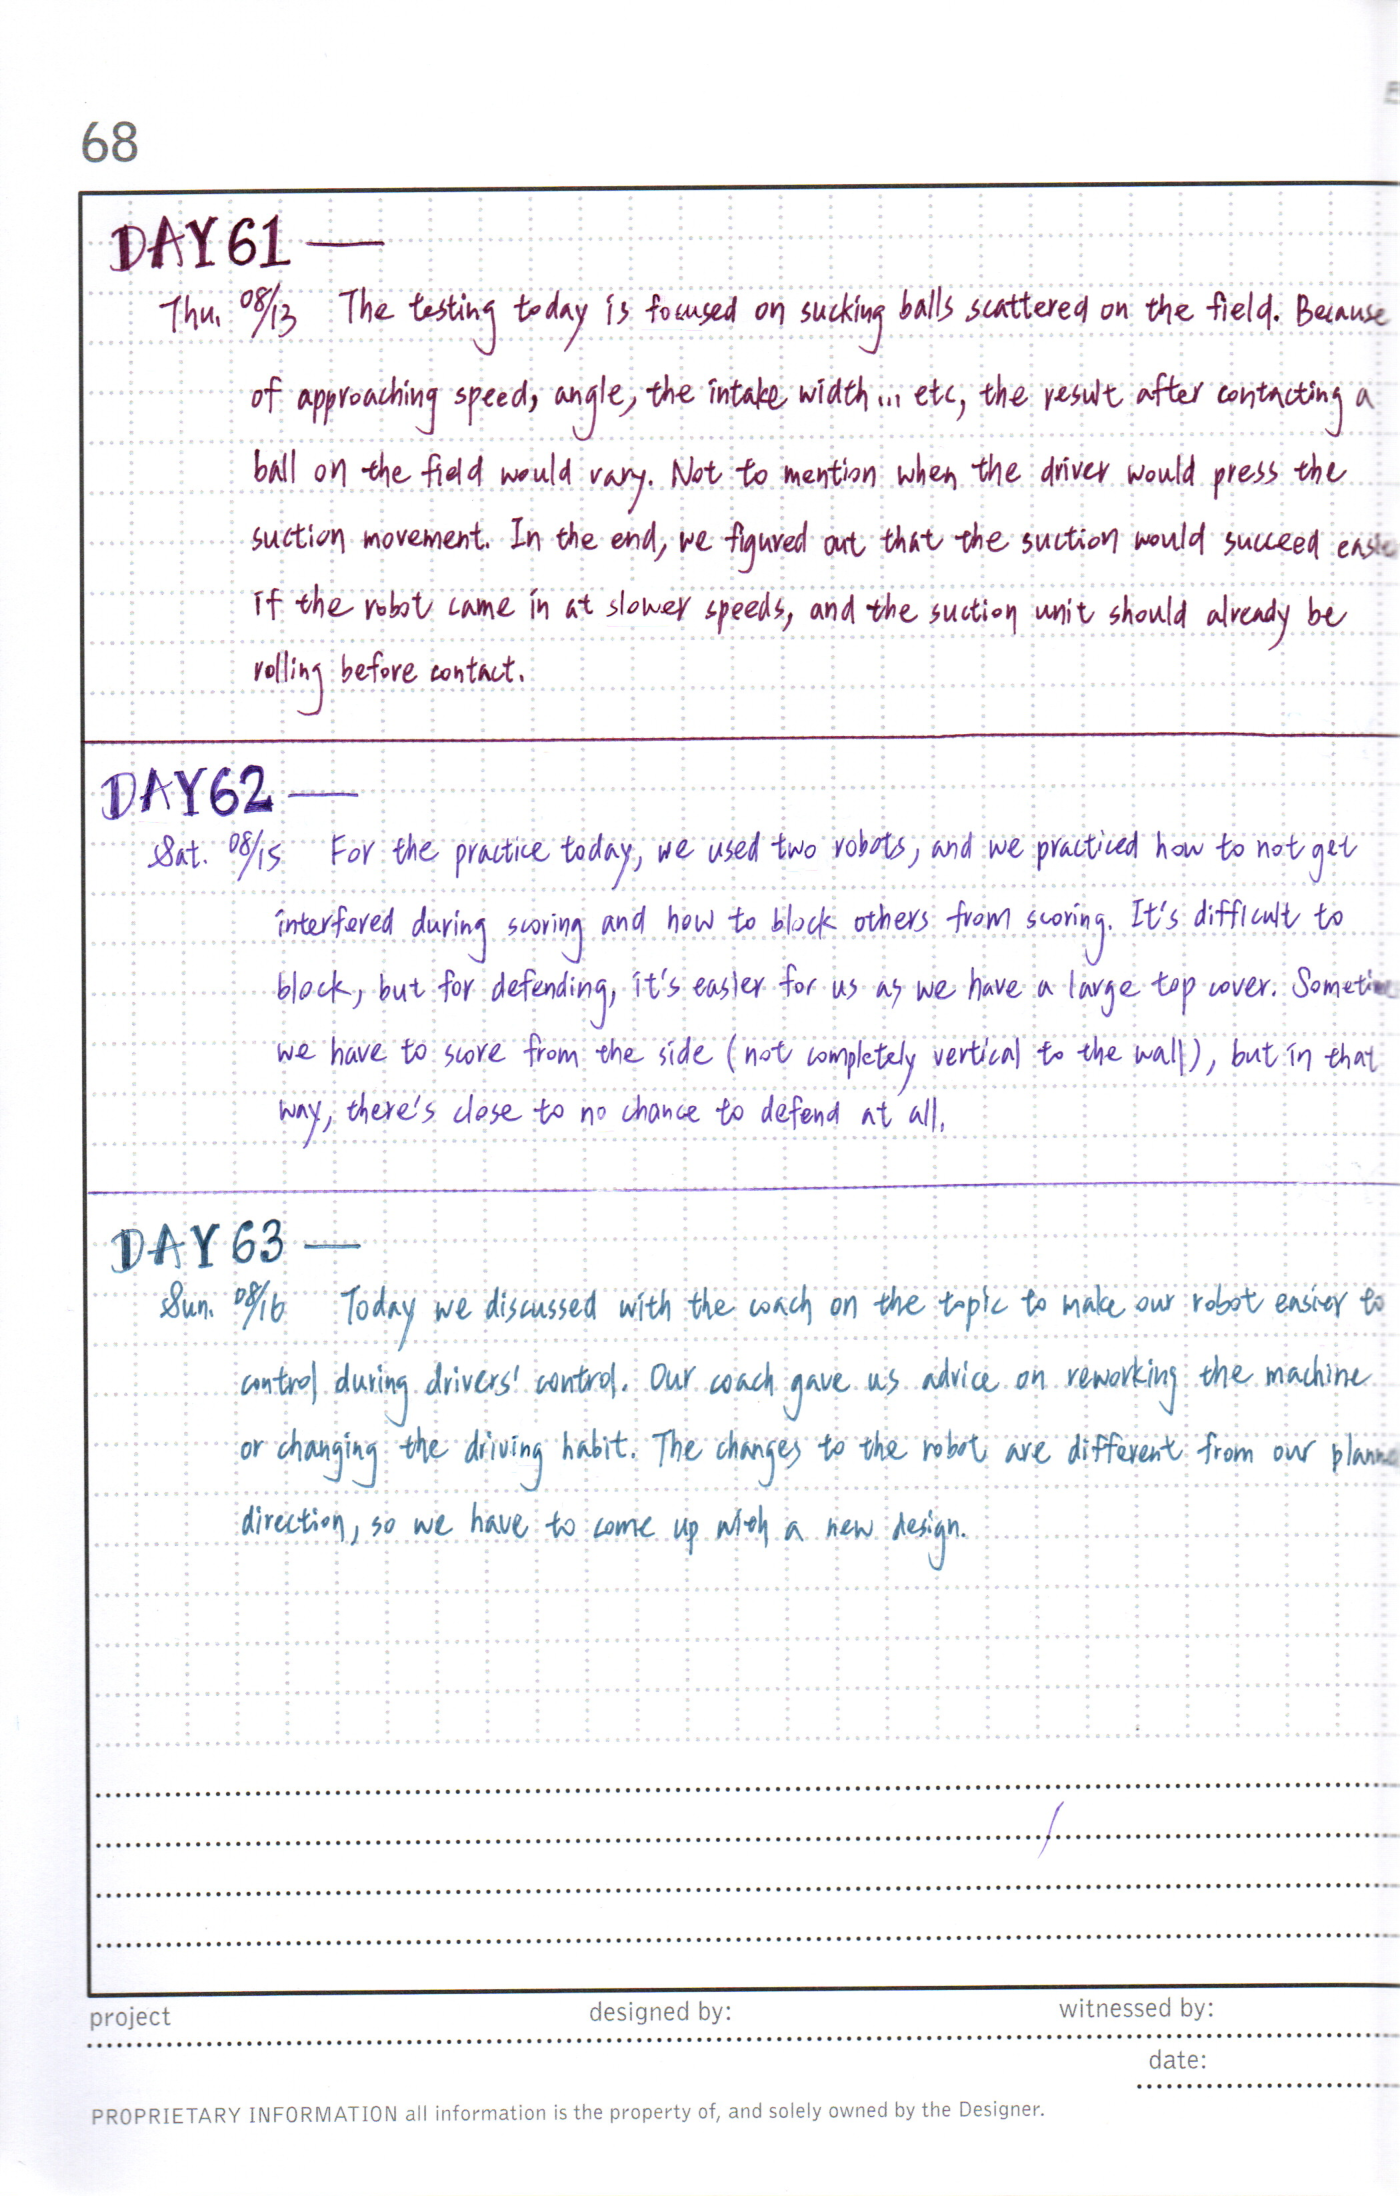 68
DAY 61 —
Thu. 08/13 The testing today is focused on sucking balls scattered on the field. Because
of approaching speed, angle, the intake width... etc, the result after contacting a
ball on the field would vary. Not to mention when the driver would press the
suction movement. In the end, we figured out that the suction would succeed
if the robot came in at slower speeds, and the suction unit should already be
rolling before contact.
DAY 62 —
Sat. 08/15 For the practice today, we used two robots, and we practiced how to not get
interfered during scoring and how to block others from scoring. It's difficult to
block, but for defending, it's easier for us as we have a large top cover.
we have to score from the side (not completely vertical to the wall), but in that
way, there's close to no chance to defend at all.
DAY 63 —
Sun. 08/16 Today we discussed with the coach on the topic to make our robot easier to
control during drivers' control. Our coach gave us advice on reworking the machine
or changing the driving habit. The changes to the robot are different from our
direction, so we have to come up with a new design.
project designed by: witnessed by:
date:
PROPRIETARY INFORMATION all information is the property of, and solely owned by the Designer.